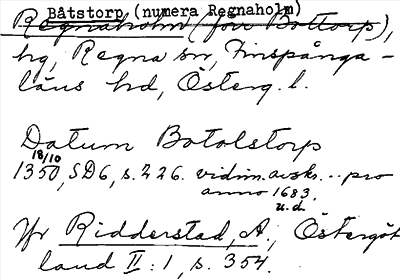 Båtstorp (numera Regnaholm)
Regnaholm (förr Bottorp),
hg, Regna sn, Finspånga-
läns hd, Österg. l.
Datum Botolstorp
18/10
1350, SD6, s. 226. vidim. avskr. .. pro
anno 1683.
u.d.
Jfr Ridderstad, A., Östergöt
land II:1, s. 354.